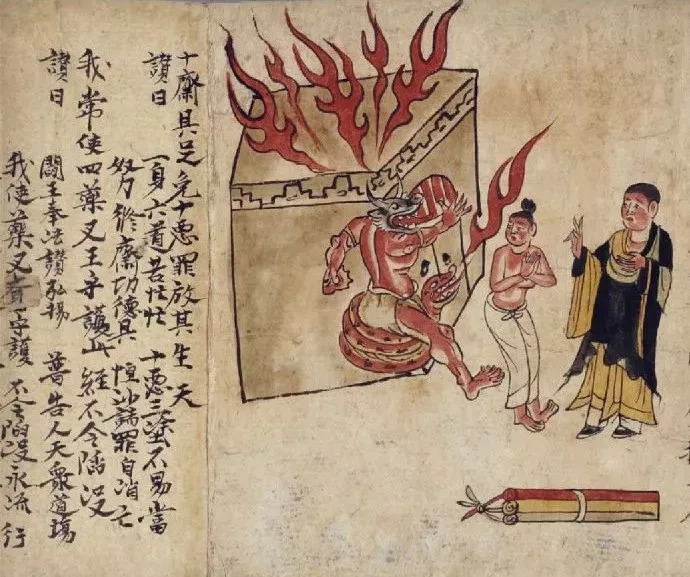 十齋具足免十惡罪放其生天
讚曰 一身六道苦忙忙 十惡三塗不易當
努力修齋功德具 恒沙諸罪自消亡
我常使四藥叉王守護此經不令陷沒
讚曰 閻王奉法讚弘揚 普告人天衆道場
我使藥叉齊守護 不令陷沒永流行